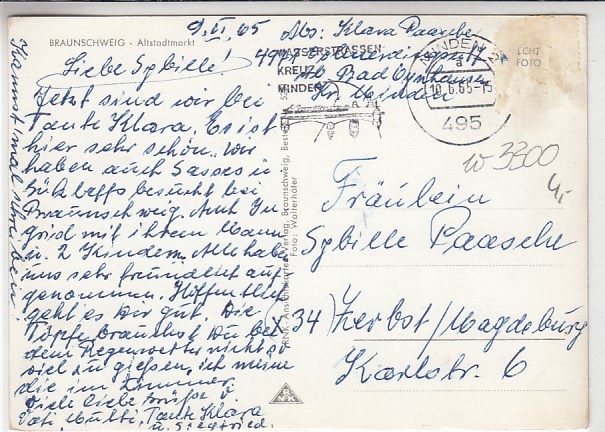 BRAUNSCHWEIG - Altstadtmarkt
9.VI.65
Abs: Klara Paasche
4991
üb. Bad Oynhausen
Kr. Minden
WASSERSTRASSEN
KREUZ
MINDEN
MINDEN
10.6.65-15
495
ECHT
FOTO
W 3300
4,-
Liebe Sybille!
Jetzt sind wir bei
Tante Klara. Es ist
hier sehr schön. Wir
haben auch Sasses u
besucht bei
Braunschweig. Auch In
grid mit ihrem Mann
u. 2 Kindern. Alle haben
uns sehr freundlich auf
genommen. Hoffentlich
geht es Dir gut. Die
Töpfe brauchst Du bei
dem Regenwetter nicht so
viel zu gießen, ich meine
die im Zimmer.
Viele liebe Grüße v.
Vati, Mutti, Tante Klara
u. Siegfried.
Verlag, Braunschweig
Foto: Walterhäfer
Fräulein
Sybille Paasche
X 34) Zerbst/Magdeburg
Karlstr. 6